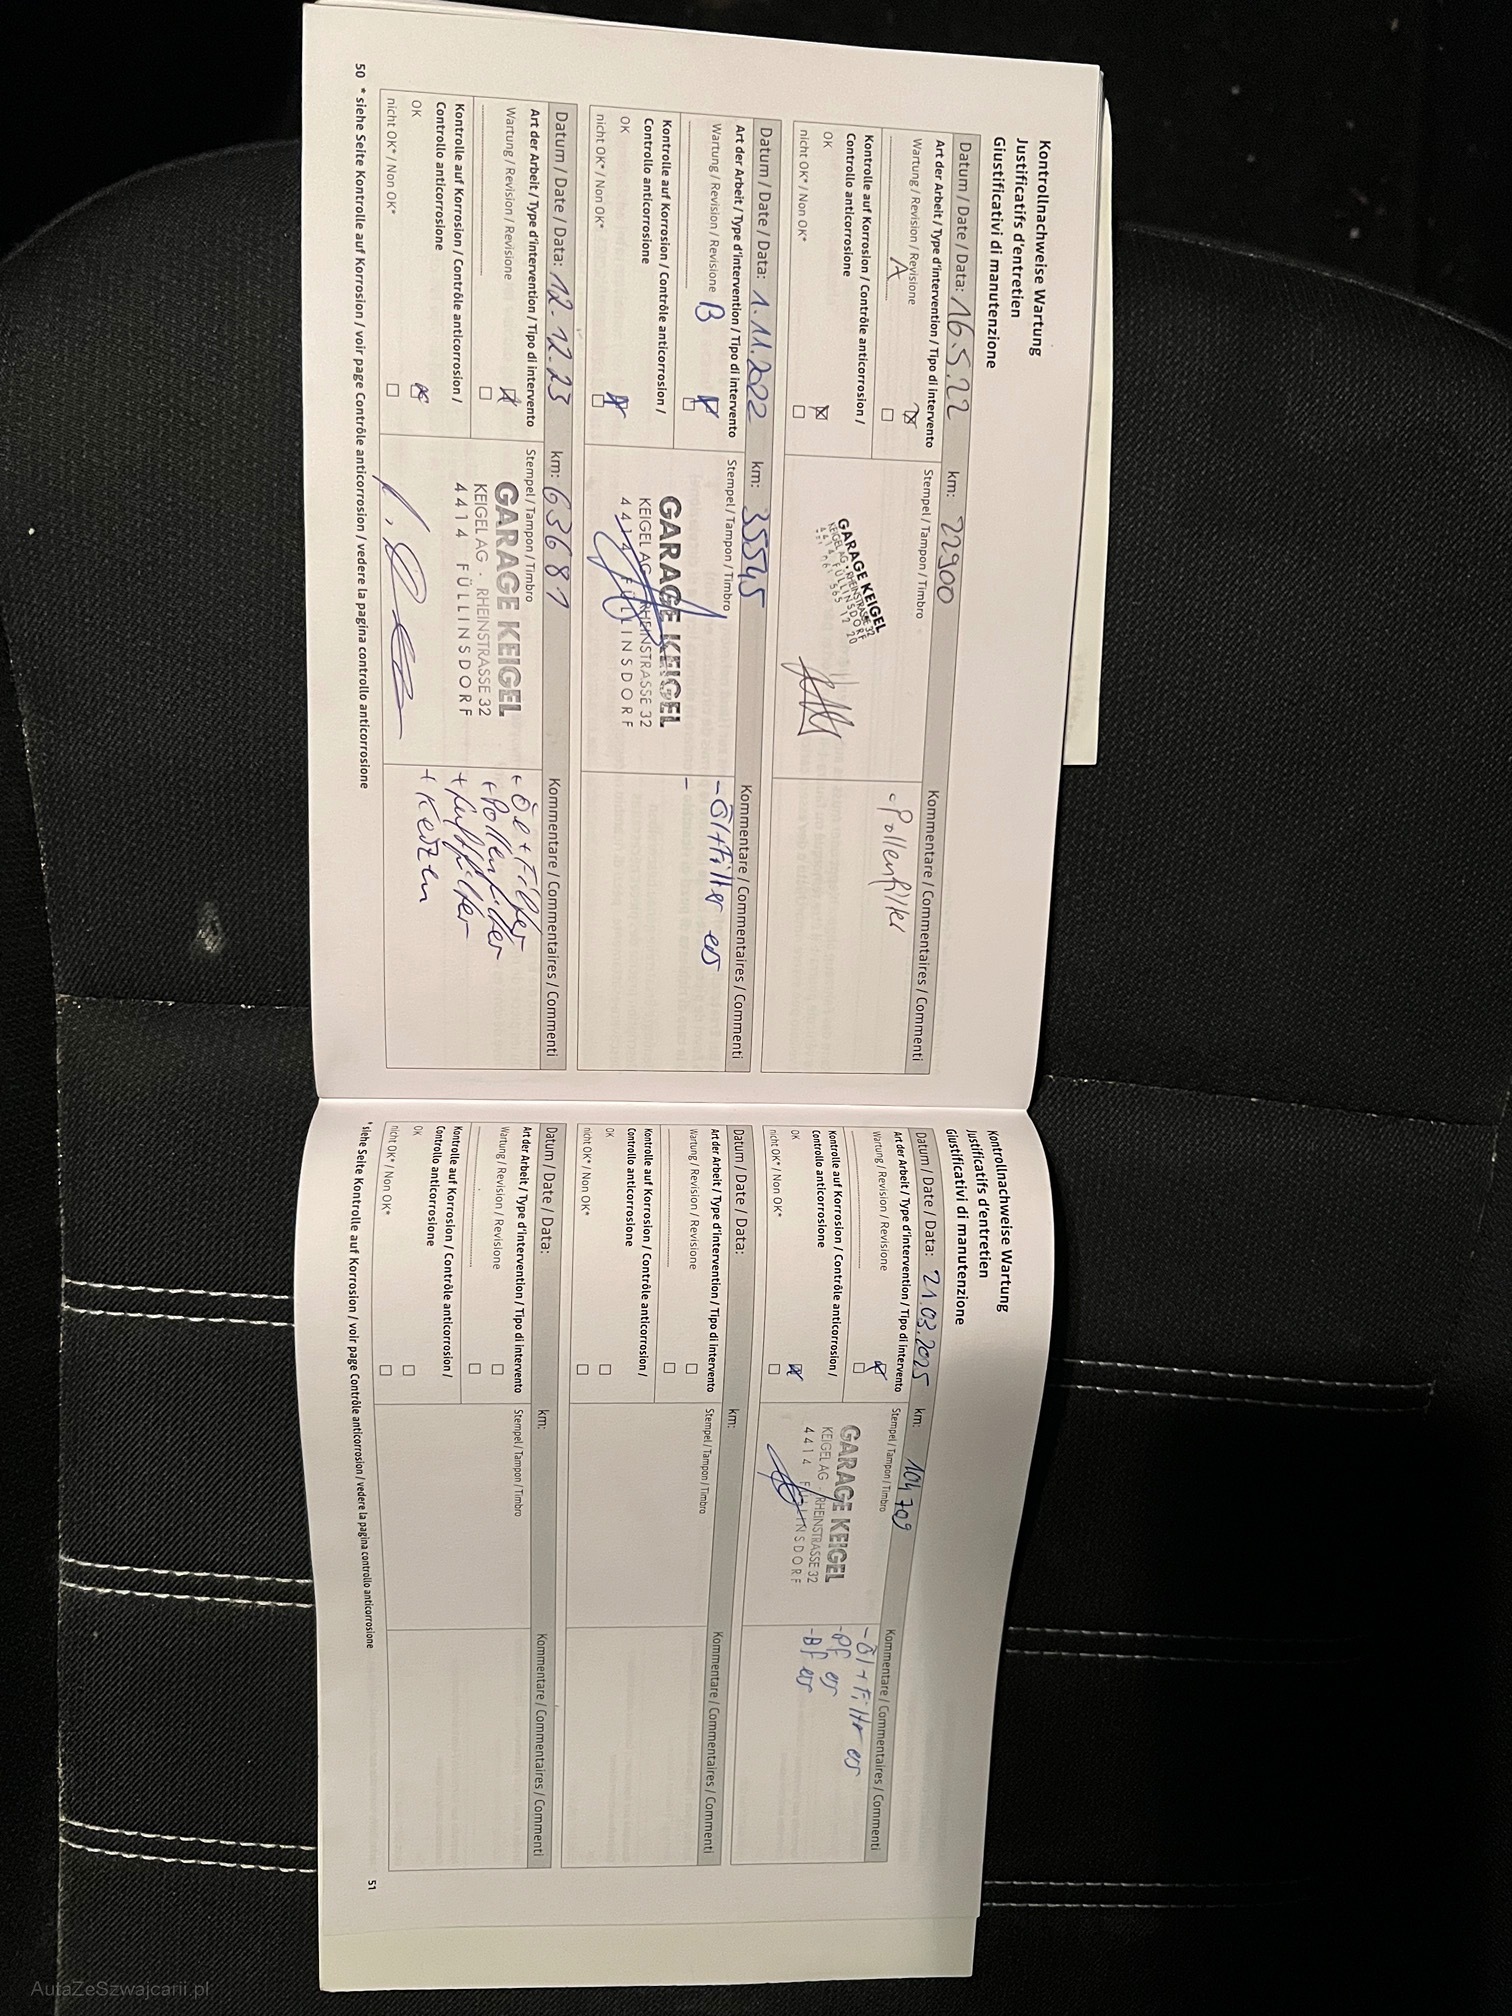 Kontrollnachweise Wartung
Justificatifs d'entretien
Giustificativi di manutenzione
Datum / Date / Data: 16.5.22 km: 22900
Art der Arbeit / Type d'intervention / Tipo di intervento
Wartung / Revision / Revisione
A
Kontrolle auf Korrosion / Contrôle anticorrosion /
Controllo anticorrosione
OK
nicht OK* / Non OK*
Stempel / Tampon / Timbro
GARAGE KEIGEL
KEIGEL AG · RHEINSTRASSE 32
4414 FÜLLINSDORF
061 565 12 20
Kommentare / Commentaires / Commenti
- Pollenfilter
Datum / Date / Data: 1.11.2022 km: 35545
Art der Arbeit / Type d'intervention / Tipo di intervento
Wartung / Revision / Revisione B
Kontrolle auf Korrosion / Contrôle anticorrosion /
Controllo anticorrosione
OK
nicht OK* / Non OK*
Stempel / Tampon / Timbro
GARAGE KEIGEL
KEIGEL AG · RHEINSTRASSE 32
4414 FÜLLINSDORF
Kommentare / Commentaires / Commenti
- Öl + Filter ers
-
Datum / Date / Data: 12.12.23 km: 63681
Art der Arbeit / Type d'intervention / Tipo di intervento
Wartung / Revision / Revisione
Kontrolle auf Korrosion / Contrôle anticorrosion /
Controllo anticorrosione
OK
nicht OK* / Non OK*
Stempel / Tampon / Timbro
GARAGE KEIGEL
KEIGEL AG · RHEINSTRASSE 32
4414 FÜLLINSDORF
Kommentare / Commentaires / Commenti
+ Öl + Filter
+ Pollenfilter
+ Luftfilter
+ Kerzen
50 * siehe Seite Kontrolle auf Korrosion / voir page Contrôle anticorrosion / vedere la pagina controllo anticorrosione
Kontrollnachweise Wartung
Justificatifs d'entretien
Giustificativi di manutenzione
Datum / Date / Data: 21.03.2025 km: 104709
Art der Arbeit / Type d'intervention / Tipo di intervento
Wartung / Revision / Revisione
Kontrolle auf Korrosion / Contrôle anticorrosion /
Controllo anticorrosione
OK
nicht OK* / Non OK*
Stempel / Tampon / Timbro
GARAGE KEIGEL
KEIGEL AG RHEINSTRASSE 32
4414 FÜLLINSDORF
Kommentare / Commentaires / Commenti
- Öl + Filter ers
- PF ers
- BF ers
Datum / Date / Data: km:
Art der Arbeit / Type d'intervention / Tipo di intervento
Wartung / Revision / Revisione
Kontrolle auf Korrosion / Contrôle anticorrosion /
Controllo anticorrosione
OK
nicht OK* / Non OK*
Stempel / Tampon / Timbro
Kommentare / Commentaires / Commenti
Datum / Date / Data: km:
Art der Arbeit / Type d'intervention / Tipo di intervento
Wartung / Revision / Revisione
Kontrolle auf Korrosion / Contrôle anticorrosion /
Controllo anticorrosione
OK
nicht OK* / Non OK*
Stempel / Tampon / Timbro
Kommentare / Commentaires / Commenti
* siehe Seite Kontrolle auf Korrosion / voir page Contrôle anticorrosion / vedere la pagina controllo anticorrosione 51
AutaZeSzwajcarii.pl